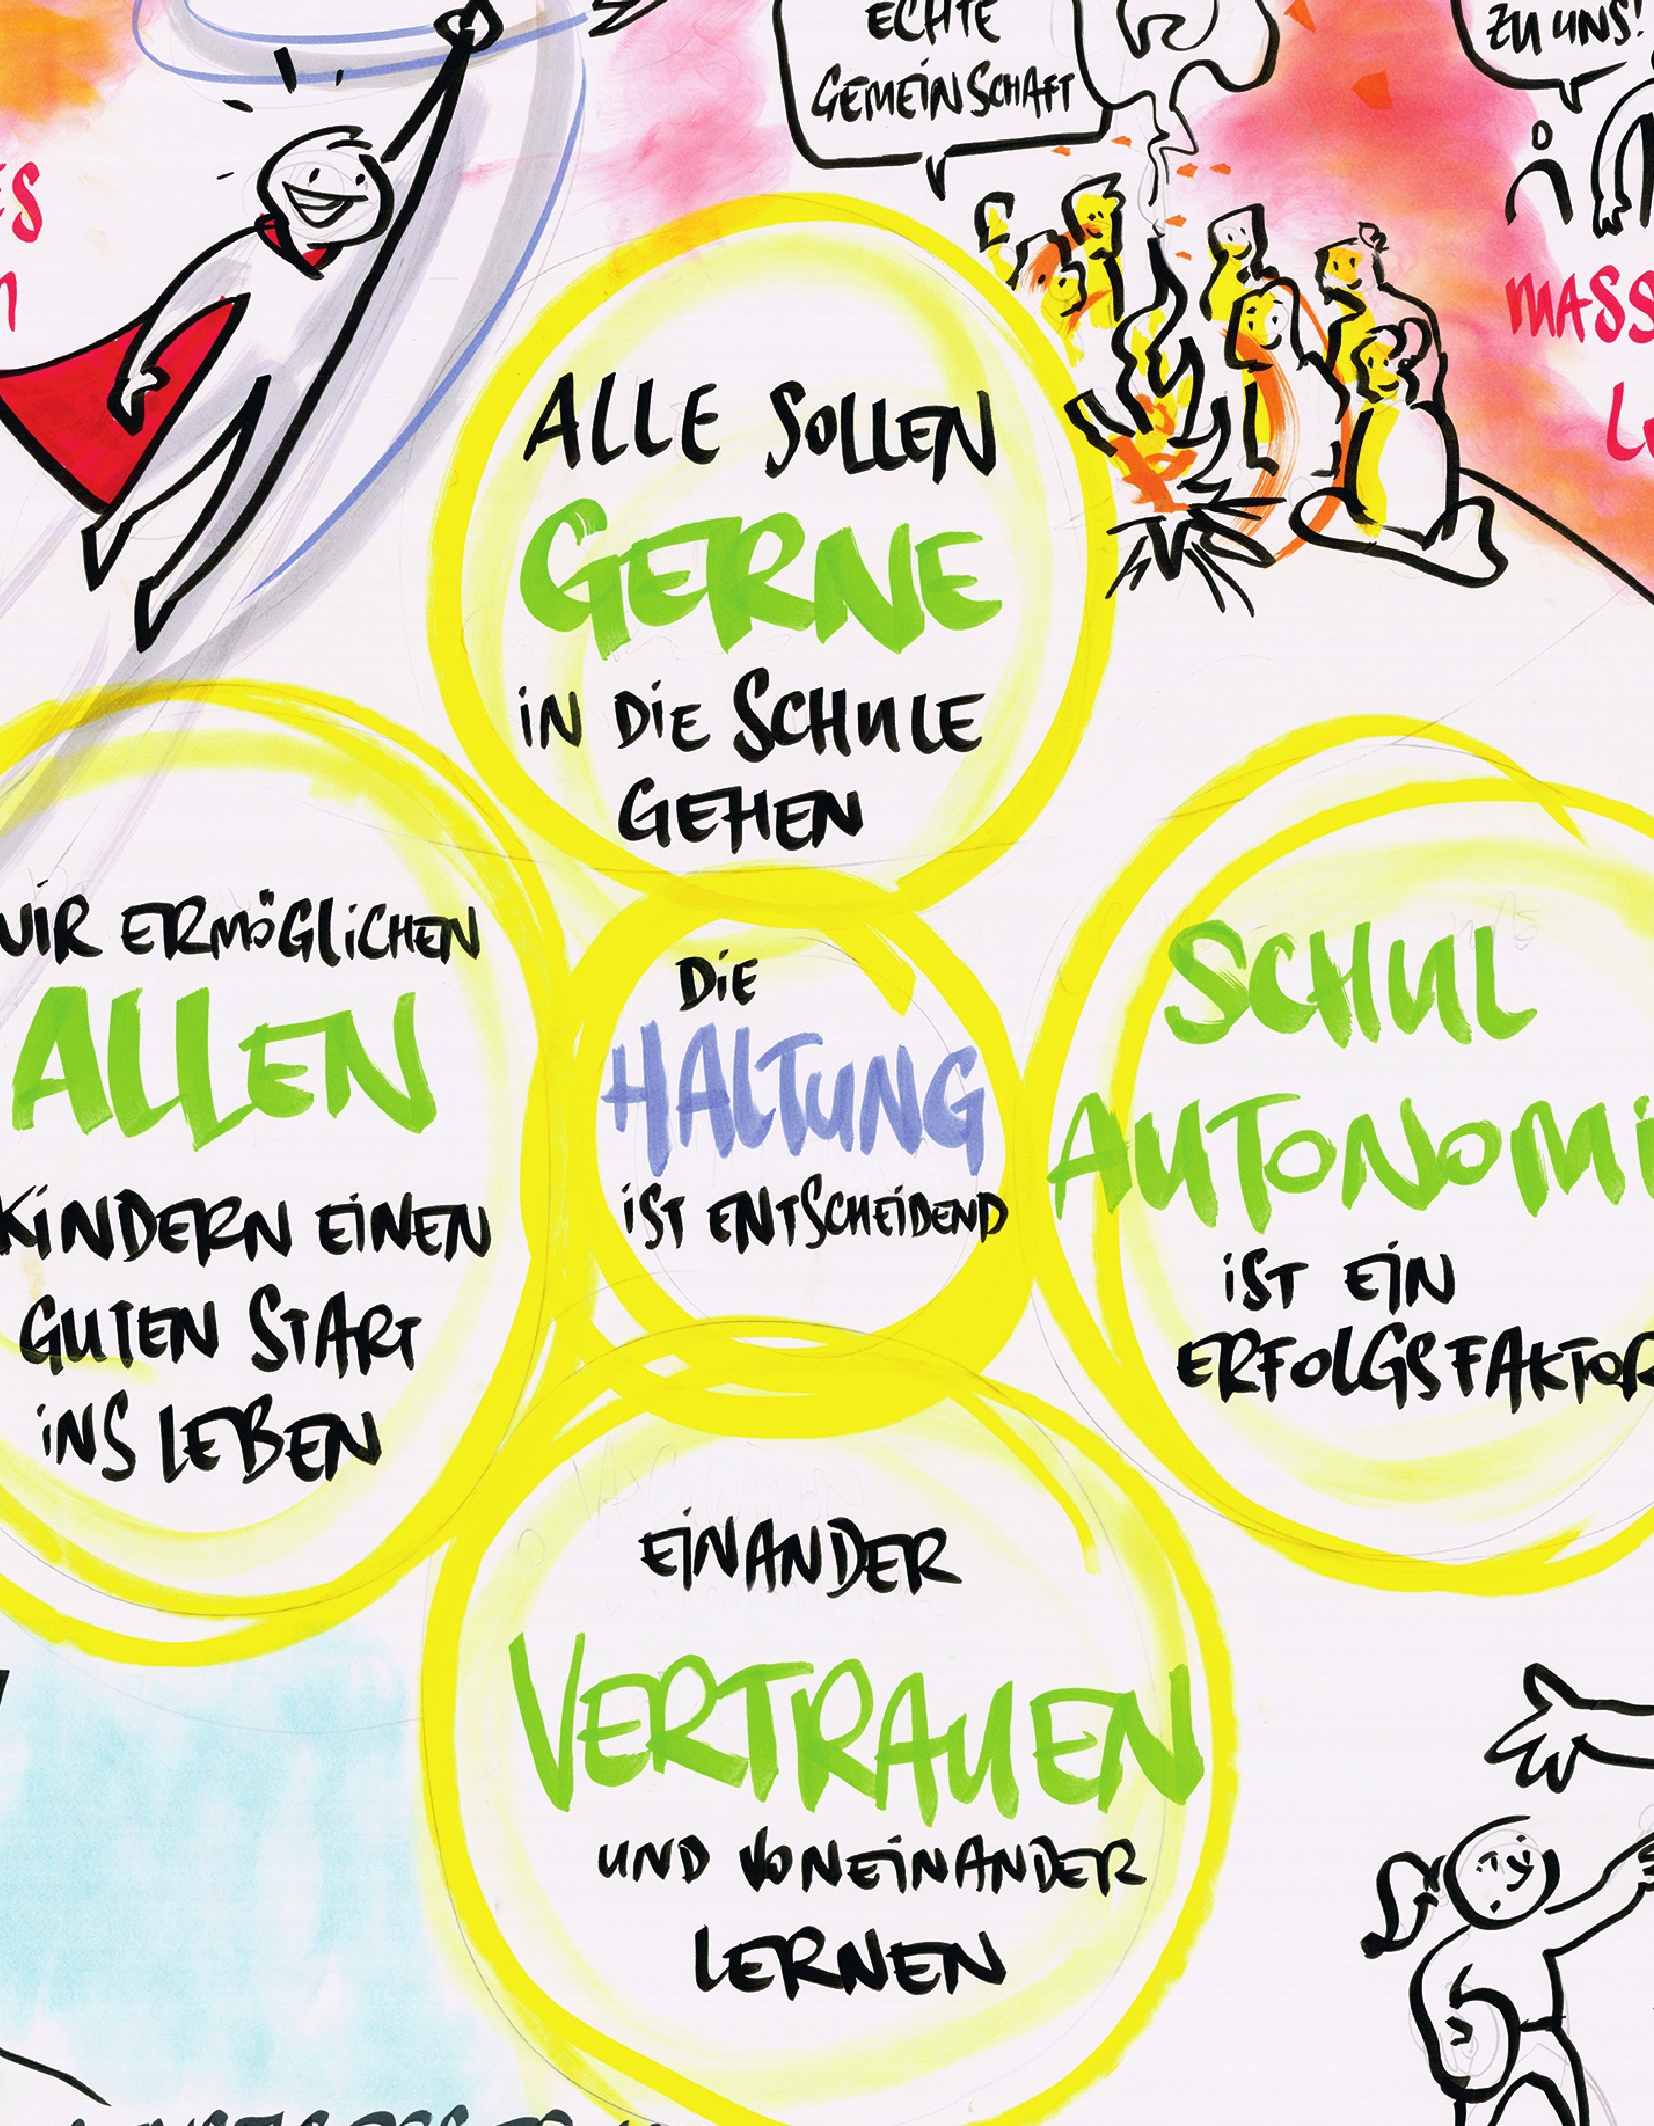 ECHTE
GEMEINSCHAFT
ZU UNS!
ALLE SOLLEN
GERNE
IN DIE SCHULE
GEHEN
WIR ERMÖGLICHEN
ALLEN
KINDERN EINEN
GUTEN START
INS LEBEN
DIE
HALTUNG
IST ENTSCHEIDEND
SCHUL
AUTONOMI
IST EIN
ERFOLGSFAKTOR
EINANDER
VERTRAUEN
UND VONEINANDER
LERNEN